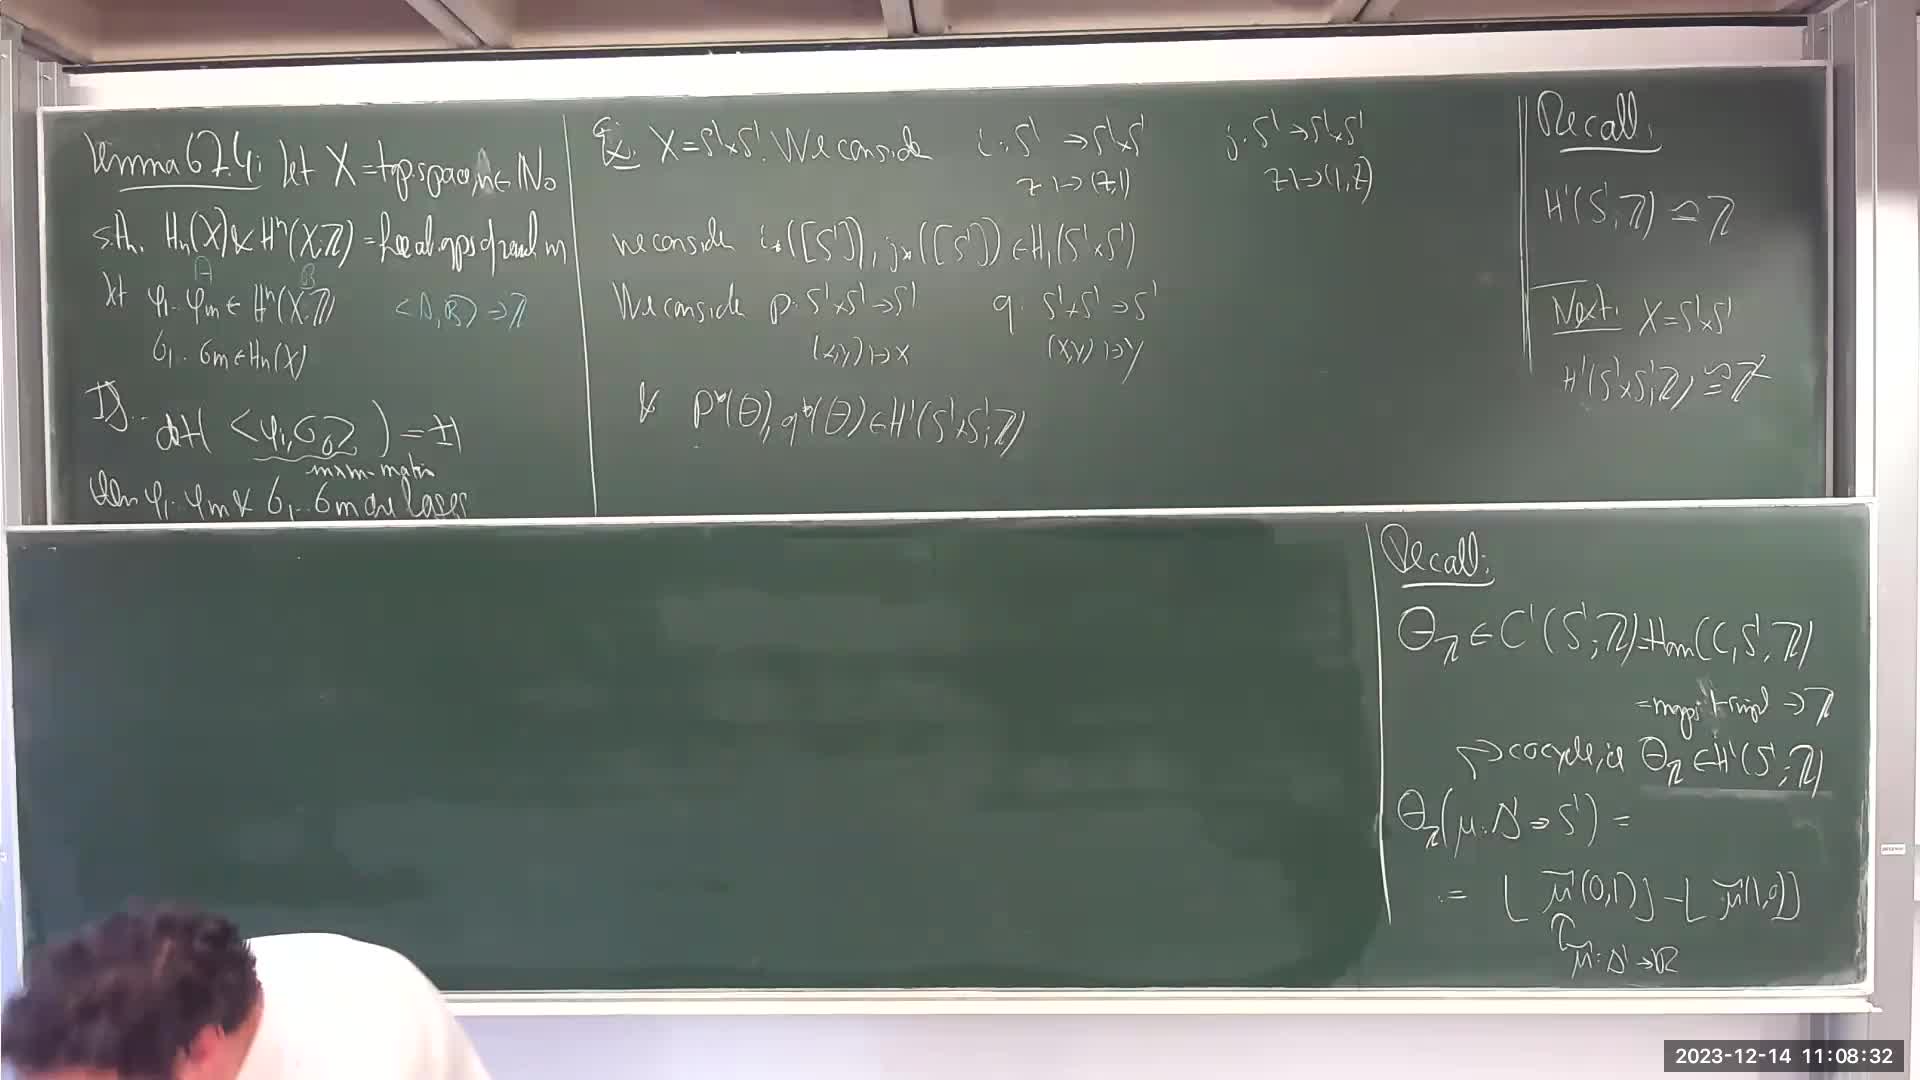 Lemma 67.4: Let X = top. space, n ∈ ℕ₀
s.th. Hₙ(X) & Hⁿ(X;ℤ) = free ab. gps of rank m
A B
let φ₁..φₘ ∈ Hⁿ(X;ℤ) <A,B> → ℤ
σ₁..σₘ ∈ Hₙ(X)
If..
det( <φᵢ,σⱼ> ) = ±1
m×m-matrix
then φ₁..φₘ & σ₁..σₘ are bases
Ex: X = S¹×S¹. We consider i: S¹ → S¹×S¹ j: S¹ → S¹×S¹
z ↦ (z,1) z ↦ (1,z)
we consider i_*([S¹]), j_*([S¹]) ∈ H₁(S¹×S¹)
We consider p: S¹×S¹ → S¹ q: S¹×S¹ → S¹
(x,y) ↦ x (x,y) ↦ y
& p*(Θ), q*(Θ) ∈ H¹(S¹×S¹;ℤ)
Recall:
H¹(S¹;ℤ) ≅ ℤ
Next: X = S¹×S¹
H¹(S¹×S¹;ℤ) ≅ ℤ²
Recall:
Θ_ℤ ∈ C¹(S¹;ℤ) = Hom(C₁S¹,ℤ)
= maps 1-simpl → ℤ
↪ cocycle, ie Θ_ℤ ∈ H¹(S¹;ℤ)
Θ_ℤ(μ: Δ¹ → S¹) =
= ⌊μ̃(0,1)⌋ - ⌊μ̃(1,0)⌋
μ̃: Δ¹ → ℝ
2023-12-14 11:08:32